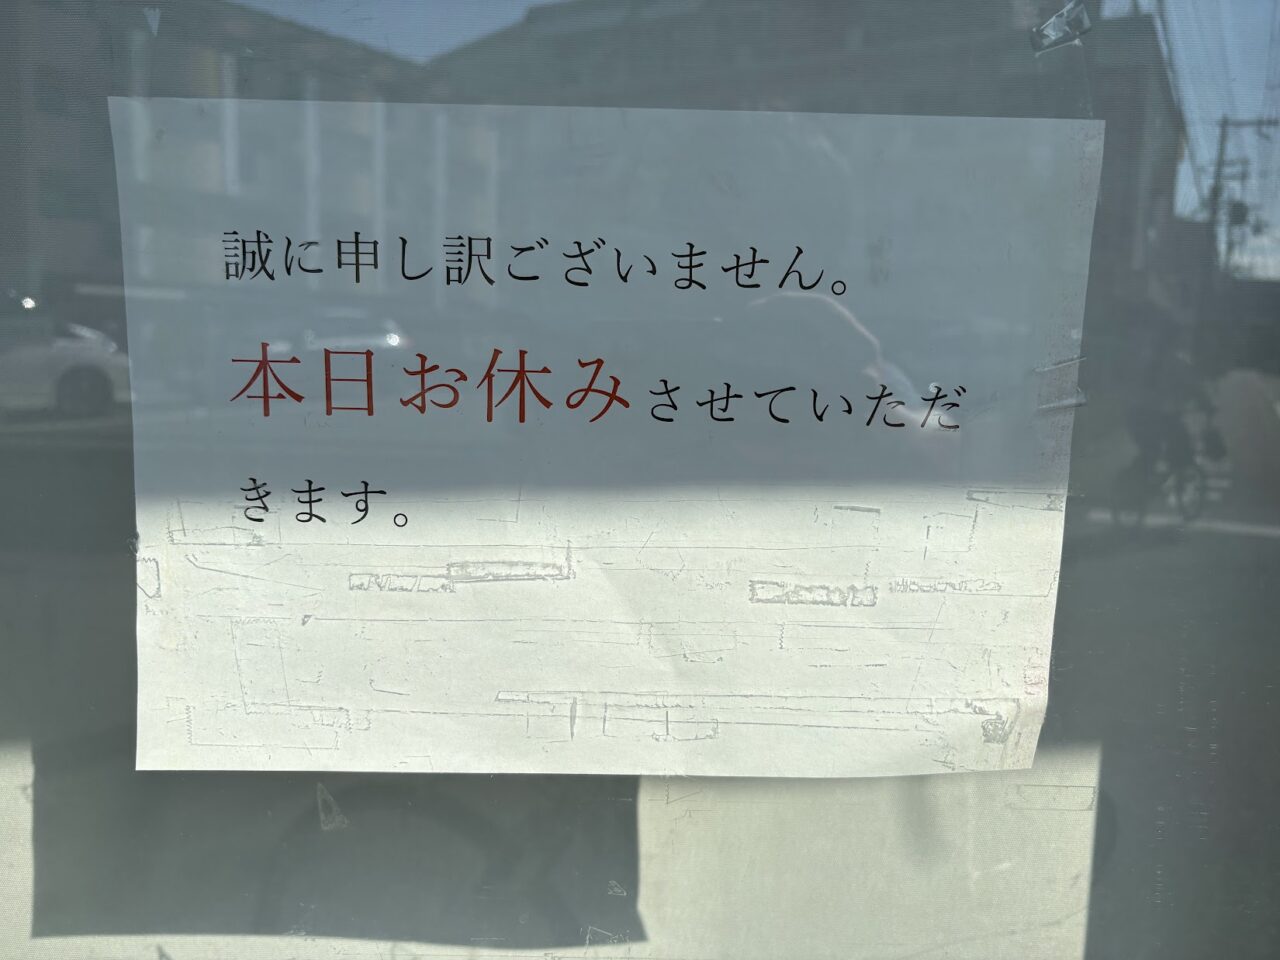 誠に申し訳ございません。
本日お休みさせていただ
きます。